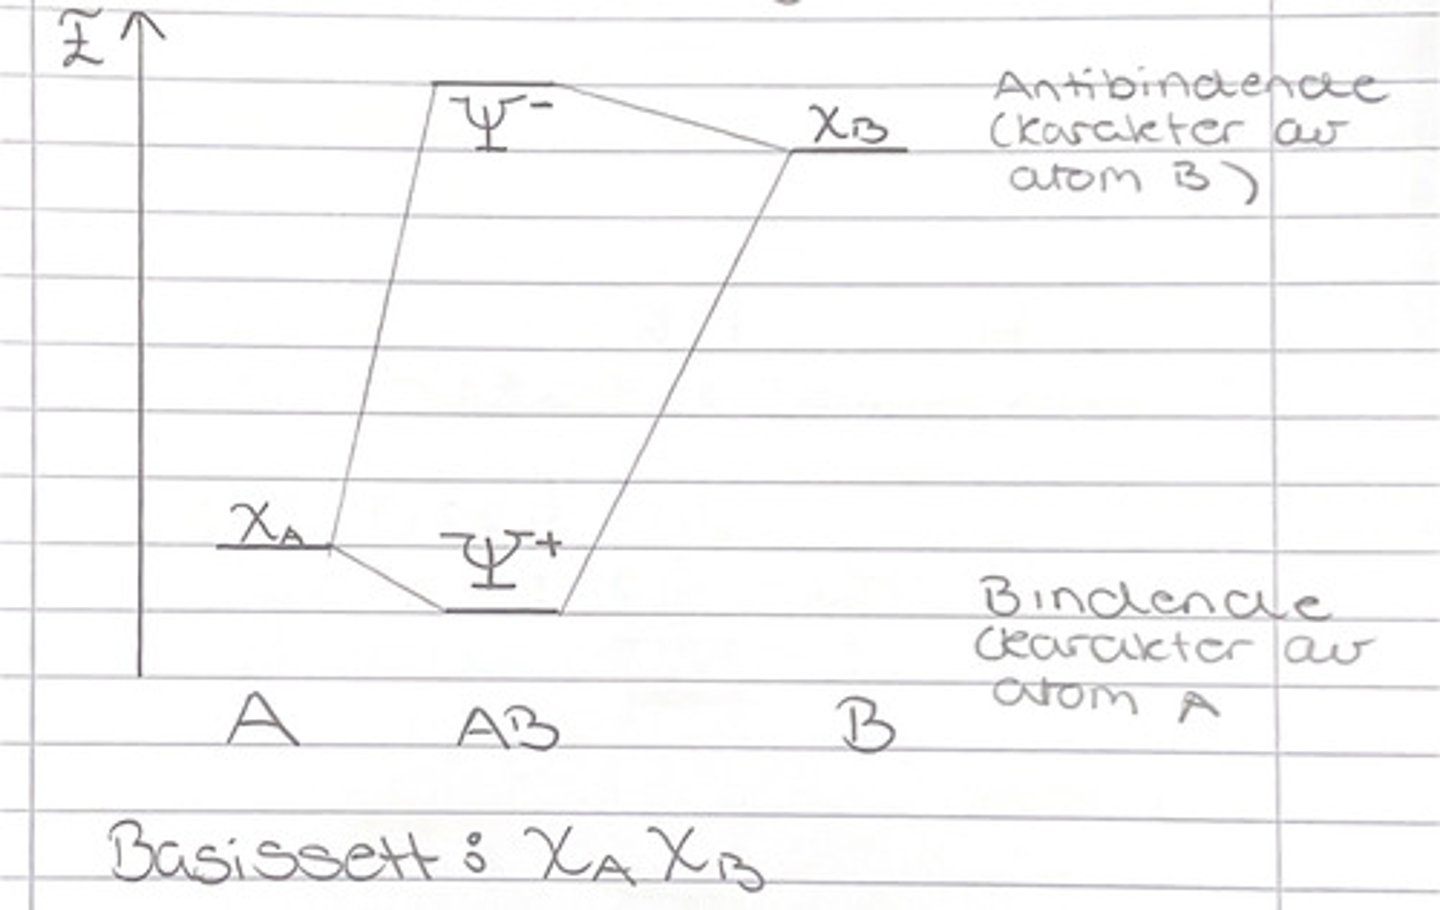 E
Ψ⁻
χB
Antibindende
(karakter av
atom B)
χA
Ψ⁺
Bindende
(karakter av
atom A
A AB B
Basissett: χA χB